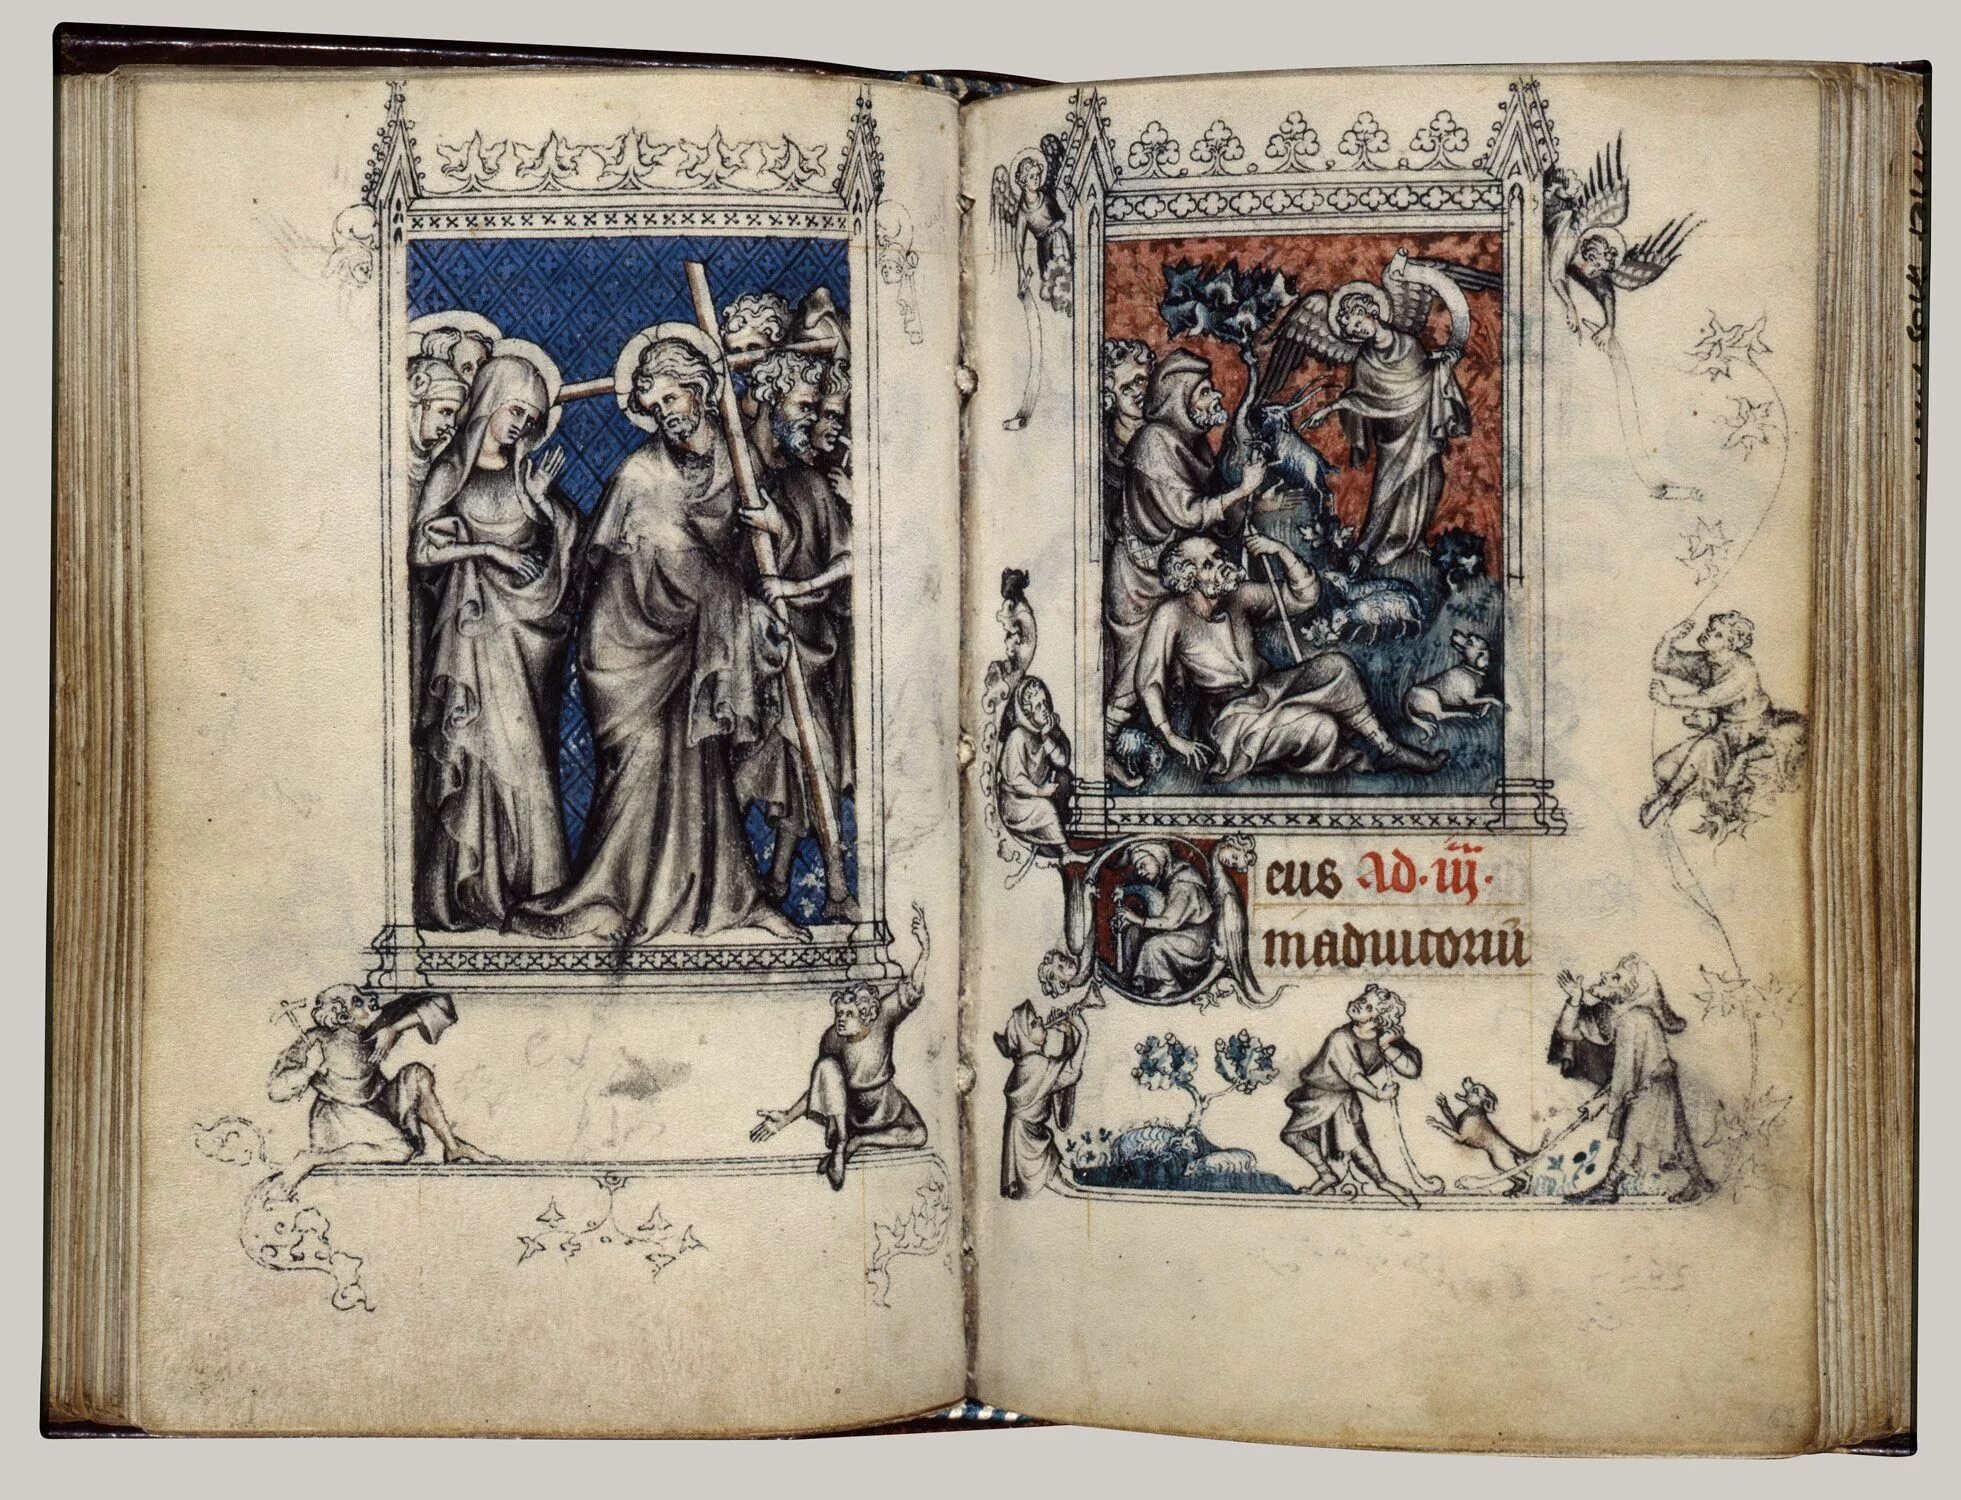 eus Ad·iij·
m adiutoriū